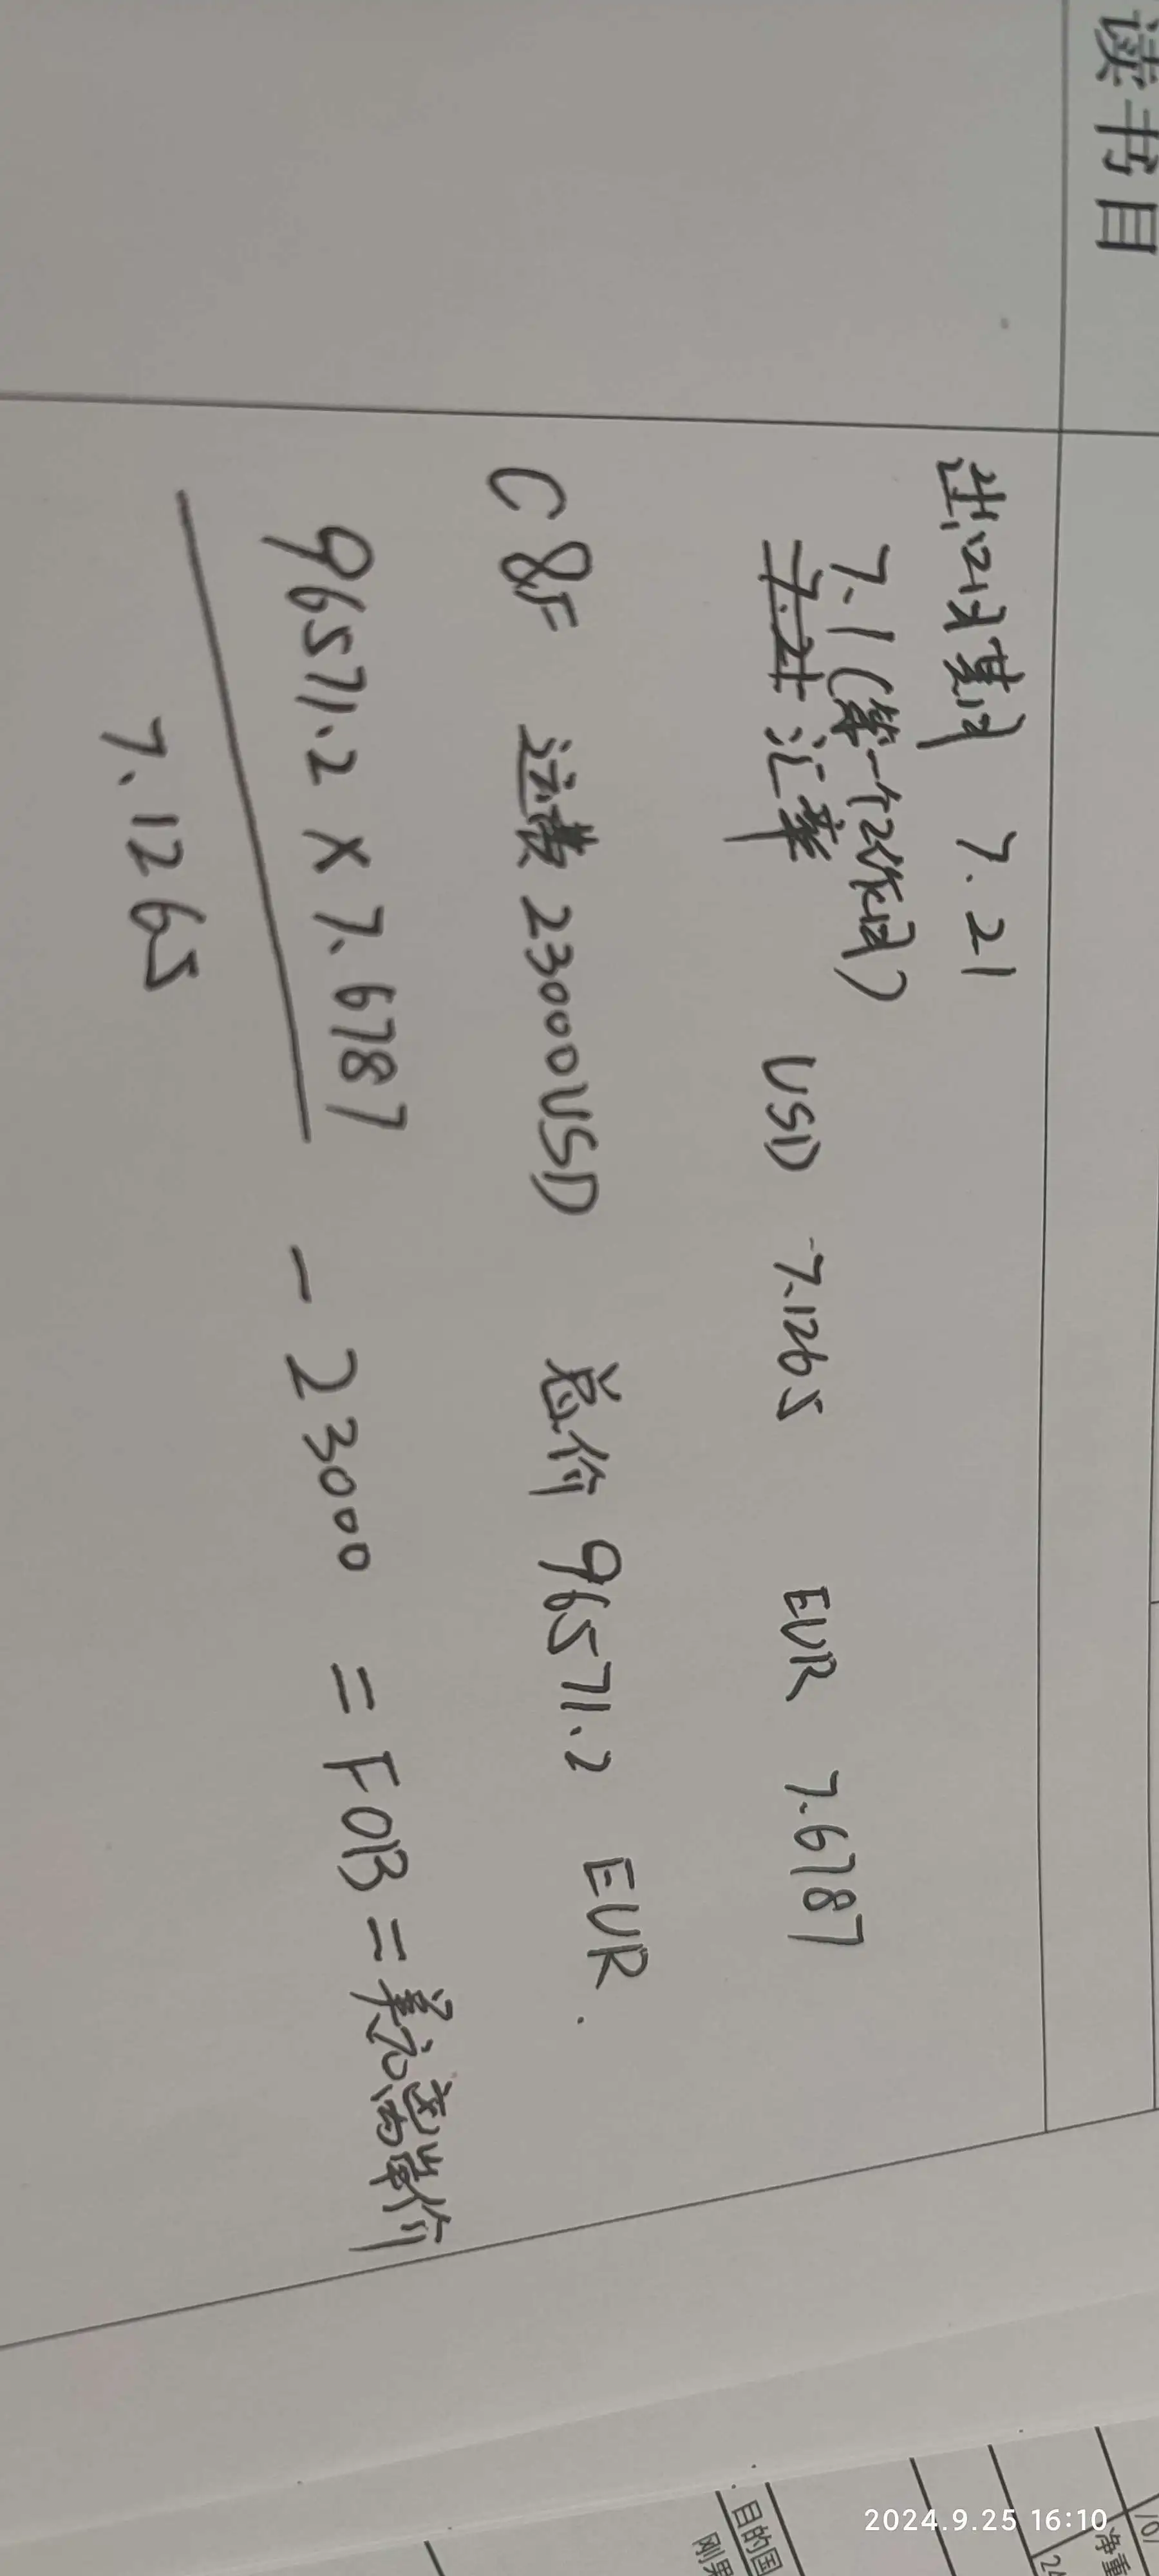 读书目
出口日期 7.21
7.1(第一个工作日)
7.21 汇率 USD 7.1265 EUR 7.6787
C&F 运费 23000USD 总价 96571.2 EUR.
96571.2 × 7.6787
7.1265
- 23000 = FOB = 美元离岸价
目的国
刚果
净重
2024.9.25 16:10